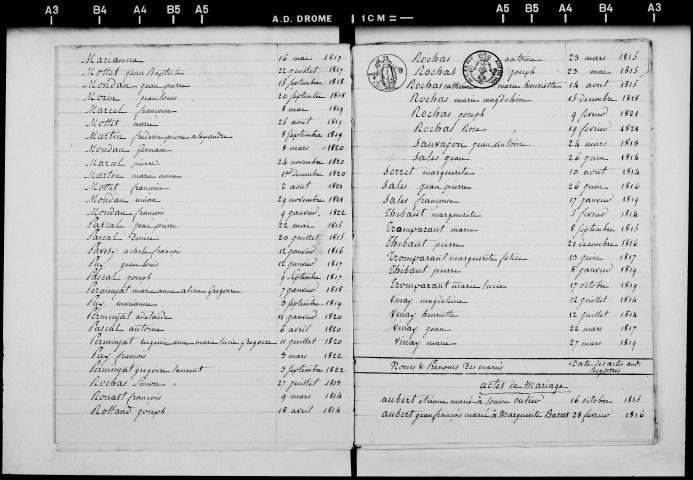 A3 B4 A4 B5 A5 A.D. DROME 1CM A5 B5 A4 B4 A3
Marianne 16 mai 1817
Mottet jean Baptiste 22 juillet 1817
Mondan jean pierre 15 septembre 1818
Morin jean louis 20 septembre 1818
Marcel francoise 8 mai 1819
Mottet marie 26 août 1819
Martin frederic pierre alexandre 8 septembre 1819
Mondan germain 8 mars 1820
Marcel pierre 24 novembre 1820
Martin marie anne 1er décembre 1820
Mottet francoise 2 aout 1821
Mondan union 29 novembre 1821
Mondan francois 9 janvier 1822
Pascal jean pierre 22 mai 1813
Pascal Denise 20 juillet 1815
Pavesy achile françois 12 janvier 1816
Puy jean louis 12 janvier 1817
Pascal joseph 9 septembre 1817
Perminjat marie anne aline Gregoire 7 janvier 1818
Puy marianne 3 septembre 1819
Perminjat adelaide 11 janvier 1820
Pascal antoine 6 avril 1820
Perminjat eugenie anne marie lucie gregoire 11 juillet 1820
Puy francois 3 mars 1822
Perminjat gregoire laurent 3 septembre 1822
Rochas Simon 27 juillet 1813
Rouast francois 9 mars 1814
Rolland joseph 18 avril 1814
Rochas antoine 23 mars 1815
Rochas joseph 23 mai 1815
Rochas catherine marie henriette 14 avril 1815
Rochas marie magdeleine 15 decembre 1818
Rochas joseph 9 fevrier 1821
Rochas Rose 19 fevrier 1821
Sauvajon jean antoine 24 mars 1813
Sales jean 26 juin 1814
Serret marguerite 10 avril 1814
Sales jean pierre 26 juin 1816
Sales francoise 17 janvier 1819
Thibaut marguerite 5 fevrier 1814
Tromparant marie 8 septembre 1815
Thibaut pierre 21 decembre 1816
Tromparant marguerite felice 13 juin 1817
Thibaut pierre 8 janvier 1819
Tromparant marie lucie 17 octobre 1819
Vinay magdeleine 12 juillet 1814
Vinay henriette 12 juillet 1814
Vinay jean 22 mars 1817
Vinay marie 27 mars 1819
Noms & Prenoms des mariés Date des actes aux Registres
actes de Mariage
aubert etienne marié à louise 16 octobre 1815
aubert jean françois marié à Marguerite Barret 28 fevrier 1816